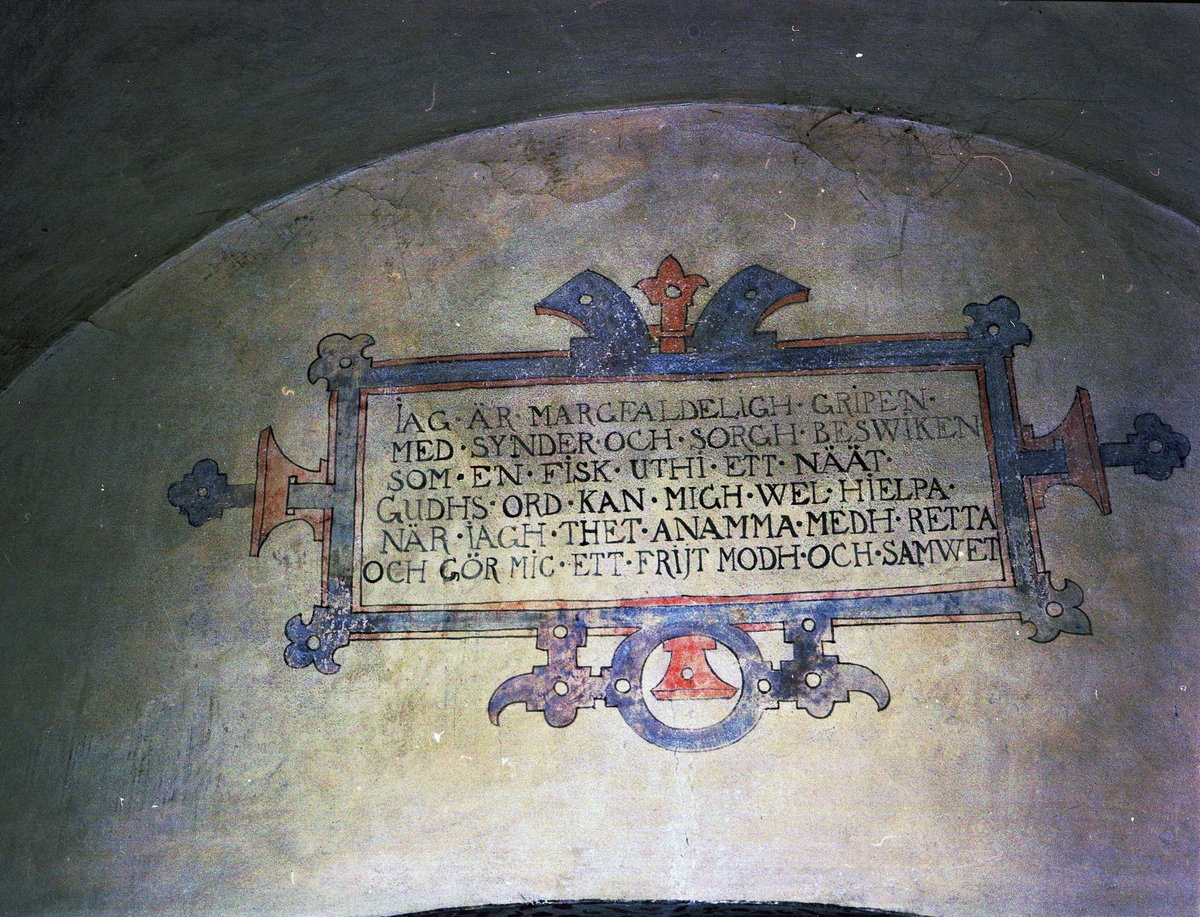 IAG·ÄR·MARGFALDELIGH·GRIPEN·
MED·SYNDER·OCH·SORGH·BESWIKEN
SOM·EN·FISK·UTHI·ETT·NÄÄT·
GUDHS·ORD·KAN·MIGH·WEL·HIELPA·
NÄR·IAGH·THET·ANAMMA·MEDH·RETTA
OCH GÖR MIC·ETT·FRIJT MODH·OCH·SAMWET